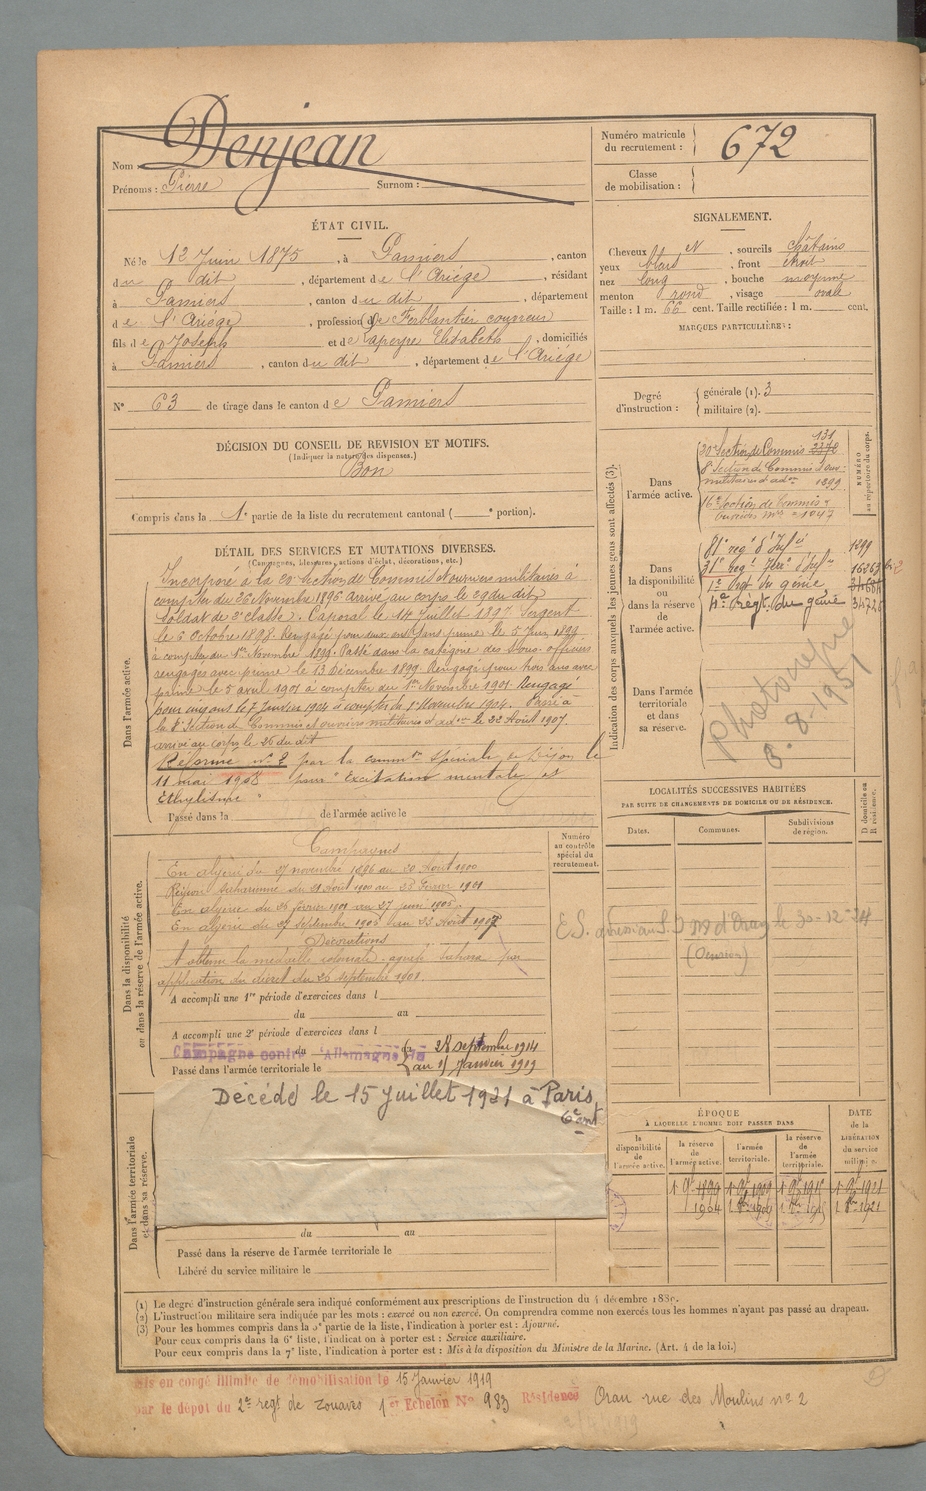 Nom : Denjean
Prénoms : Pierre Surnom :
Numéro matricule du recrutement : 672
Classe de mobilisation :
ÉTAT CIVIL.
Né le 12 Juin 1875, à Pamiers, canton
du dit, département de l'Ariège, résidant
à Pamiers, canton du dit, département
de l'Ariège, profession de Ferblantier couvreur
fils de Joseph et de Lapeyre Elisabeth, domiciliés
à Pamiers, canton du dit, département de l'Ariège
N° 63 de tirage dans le canton de Pamiers
SIGNALEMENT.
Cheveux N, sourcils châtains
yeux bleus, front étroit
nez long, bouche moyenne
menton rond, visage ovale
Taille : 1 m. 66 cent. Taille rectifiée : 1 m. cent.
MARQUES PARTICULIÈRES :
Degré d'instruction : générale (1). 3
militaire (2).
DÉCISION DU CONSEIL DE REVISION ET MOTIFS.
(Indiquer la nature des dispenses.)
Bon
Compris dans la 1e partie de la liste du recrutement cantonal ( e portion).
DÉTAIL DES SERVICES ET MUTATIONS DIVERSES.
(Campagnes, blessures, actions d'éclat, décorations, etc.)
Dans l'armée active.
Incorporé à la Section de Commis et ouvriers militaires à
compter du 26 Novembre 1896 arrivé au corps le 29 du dit
Soldat de 2e classe. Caporal le 14 Juillet 1897. Sergent
le 6 Octobre 1898. Rengagé pour deux ans sans prime le 5 Juin 1899
à compter du 1er Novembre 1899. Passé dans la catégorie des Sous-officiers
rengagés avec prime le 13 Décembre 1899. Rengagé pour trois ans avec
prime le 5 avril 1901 à compter du 1er Novembre 1901. Rengagé
pour cinq ans le 7 Janvier 1904 à compter du 1er Novembre 1904. Passé à
la 8e Section de Commis et ouvriers militaires d'adon le 22 Août 1907.
arrivé au corps le 26 du dit
Réformé n° 2 par la common spéciale de Dijon le
11 mai 1908 pour "Excitation mentale et
Ethylisme"
Passé dans la de l'armée active le
Indication des corps auxquels les jeunes gens sont affectés (3).
NUMÉRO au répertoire du corps.
Dans l'armée active.
Section de Commis 131
8e Section de Commis d'Ouv.
militaires d'adon 1899
16e Section de Commis &
ouvriers mres 1047
Dans la disponibilité ou dans la réserve de l'armée active.
81e regt d'Infie 1299
31e regt Terr d'Infie
1er Regt du génie
4e Régt du génie
Dans l'armée territoriale et dans sa réserve.
Dans la disponibilité ou dans la réserve de l'armée active.
Campagnes
En Algérie du 27 novembre 1896 au 30 Août 1900
Région Saharienne du 31 Août 1900 au 25 Février 1901
En Algérie du 26 février 1901 au 27 juin 1905
En Algérie du 27 Septembre 1905 au 23 Août 1907
Décorations
A obtenu la médaille coloniale agrafe Sahara par
application du décret du 26 septembre 1901.
A accompli une 1re période d'exercices dans l
du au
A accompli une 2e période d'exercices dans l
Campagne contre l'Allemagne du
du 28 septembre 1914
Passé dans l'armée territoriale le au 15 Janvier 1919
Numéro au contrôle spécial du recrutement.
LOCALITÉS SUCCESSIVES HABITÉES
PAR SUITE DE CHANGEMENTS DE DOMICILE OU DE RÉSIDENCE.
Dates. Communes. Subdivisions de région. D domicile ou R résidence.
Décédé le 15 Juillet 1931 à Paris
6e arrt
Dans l'armée territoriale et dans sa réserve.
du au
Passé dans la réserve de l'armée territoriale le
Libéré du service militaire le
ÉPOQUE
À LAQUELLE L'HOMME DOIT PASSER DANS
la disponibilité de l'armée active. la réserve de l'armée active. l'armée territoriale. la réserve de l'armée territoriale.
DATE de la LIBÉRATION du service militaire.
(1) Le degré d'instruction générale sera indiqué conformément aux prescriptions de l'instruction du 4 décembre 1889.
(2) L'instruction militaire sera indiquée par les mots : exercé ou non exercé. On comprendra comme non exercés tous les hommes n'ayant pas passé au drapeau.
(3) Pour les hommes compris dans la 5e partie de la liste, l'indication à porter est : Ajourné.
Pour ceux compris dans la 6e liste, l'indication à porter est : Service auxiliaire.
Pour ceux compris dans la 7e liste, l'indication à porter est : Mis à la disposition du Ministre de la Marine. (Art. 4 de la loi.)
Mis en congé illimité de démobilisation le 15 Janvier 1919
par le dépôt du 2e regt de zouaves 1er Echelon N° 983 Résidence Oran rue des Moulins n° 2